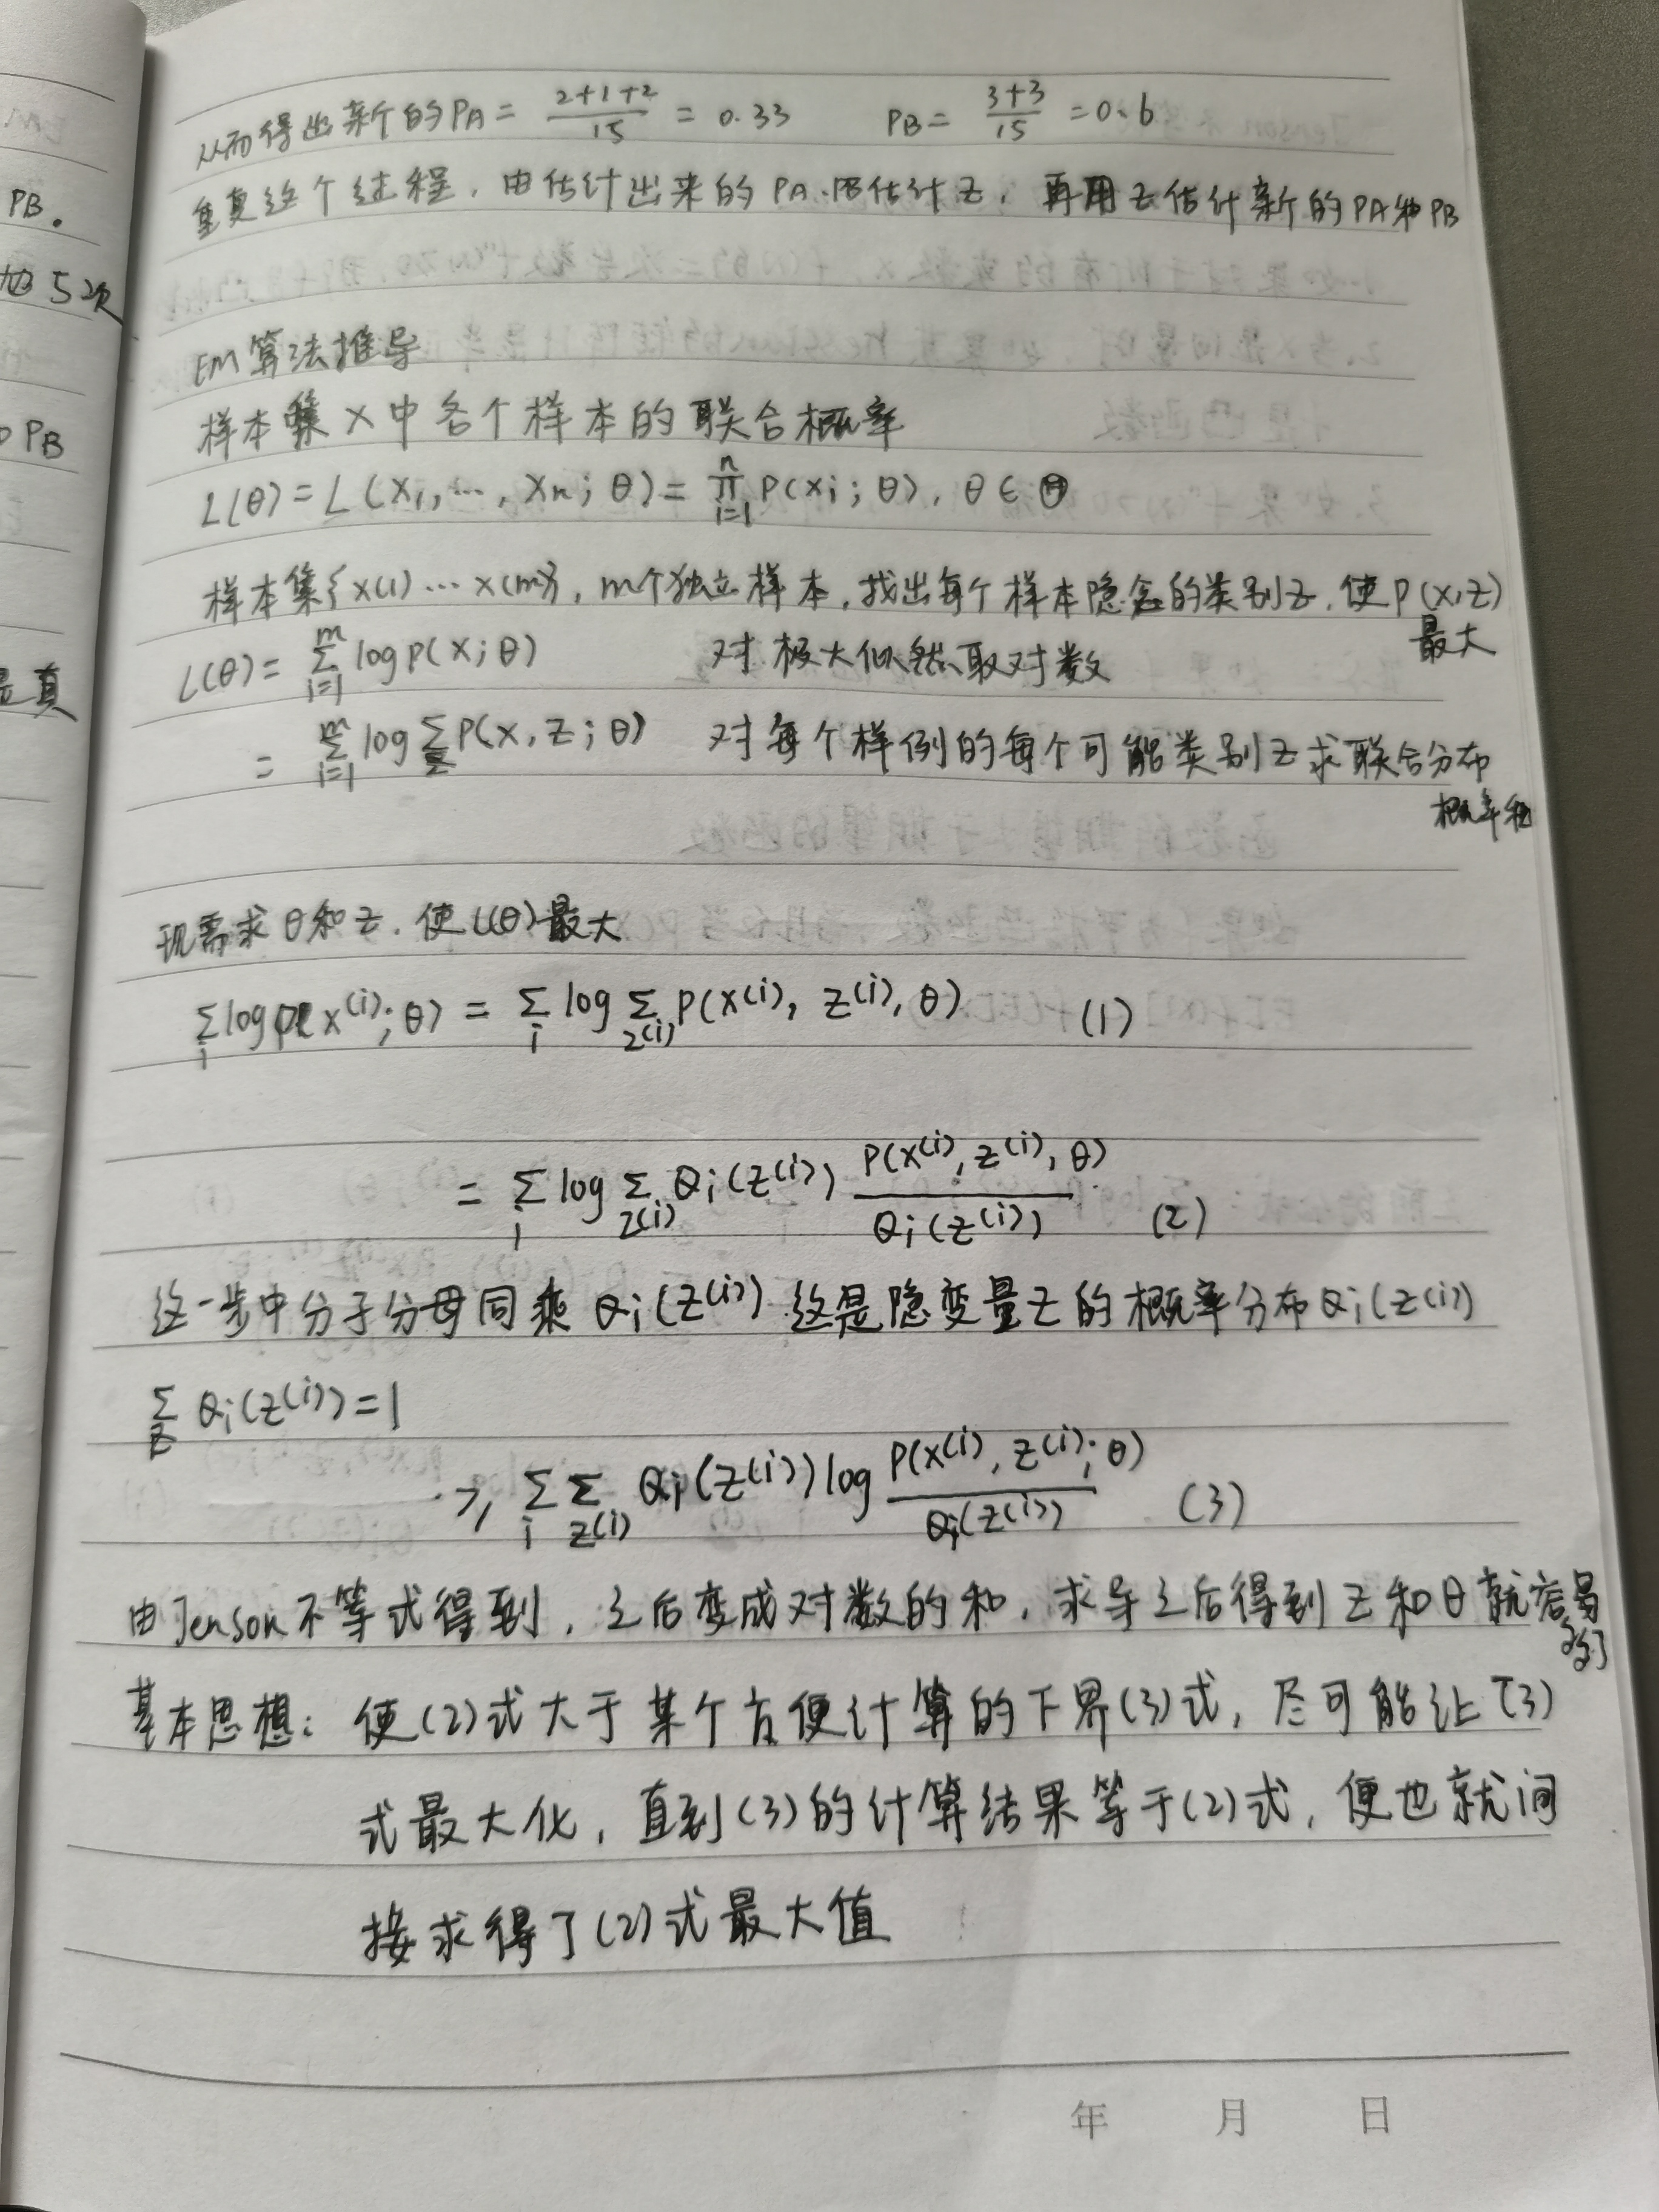 PB.
5次
PB
是真
从而得出新的PA = (2+1+2)/15 = 0.33 PB = (3+3)/15 = 0.6
重复这个过程，由估计出来的PA.PB估计Z，再用Z估计新的PA和PB
EM算法推导
样本集X中各个样本的联合概率
L(θ) = L(X1,…,Xn;θ) = ∏_{i=1}^{n} P(xi;θ), θ∈Θ
样本集{x(1)…x(m)}, m个独立样本，找出每个样本隐含的类别Z，使P(x,z)
最大
L(θ) = ∑_{i=1}^{m} log P(x;θ) 对极大似然取对数
= ∑_{i=1}^{m} log ∑_z P(x,z;θ) 对每个样例的每个可能类别Z求联合分布
概率和
现需求θ和Z，使L(θ)最大
∑_i log P(x^(i);θ) = ∑_i log ∑_{z(i)} P(x^(i), z^(i), θ) (1)
= ∑_i log ∑_{z(i)} Qi(z^(i)) P(x^(i), z^(i), θ)/Qi(z^(i)) (2)
这一步中分子分母同乘Qi(z^(i)) 这是隐变量Z的概率分布Qi(z^(i))
∑_z Qi(z^(i)) = 1
≥ ∑_i ∑_{z(i)} Qi(z^(i)) log P(x^(i), z^(i);θ)/Qi(z^(i)) (3)
由Jenson不等式得到，之后变成对数的和，求导之后得到Z和θ就容易
基本思想：使(2)式大于某个方便计算的下界(3)式，尽可能让(3)
式最大化，直到(3)的计算结果等于(2)式，便也就间
接求得了(2)式最大值
年 月 日